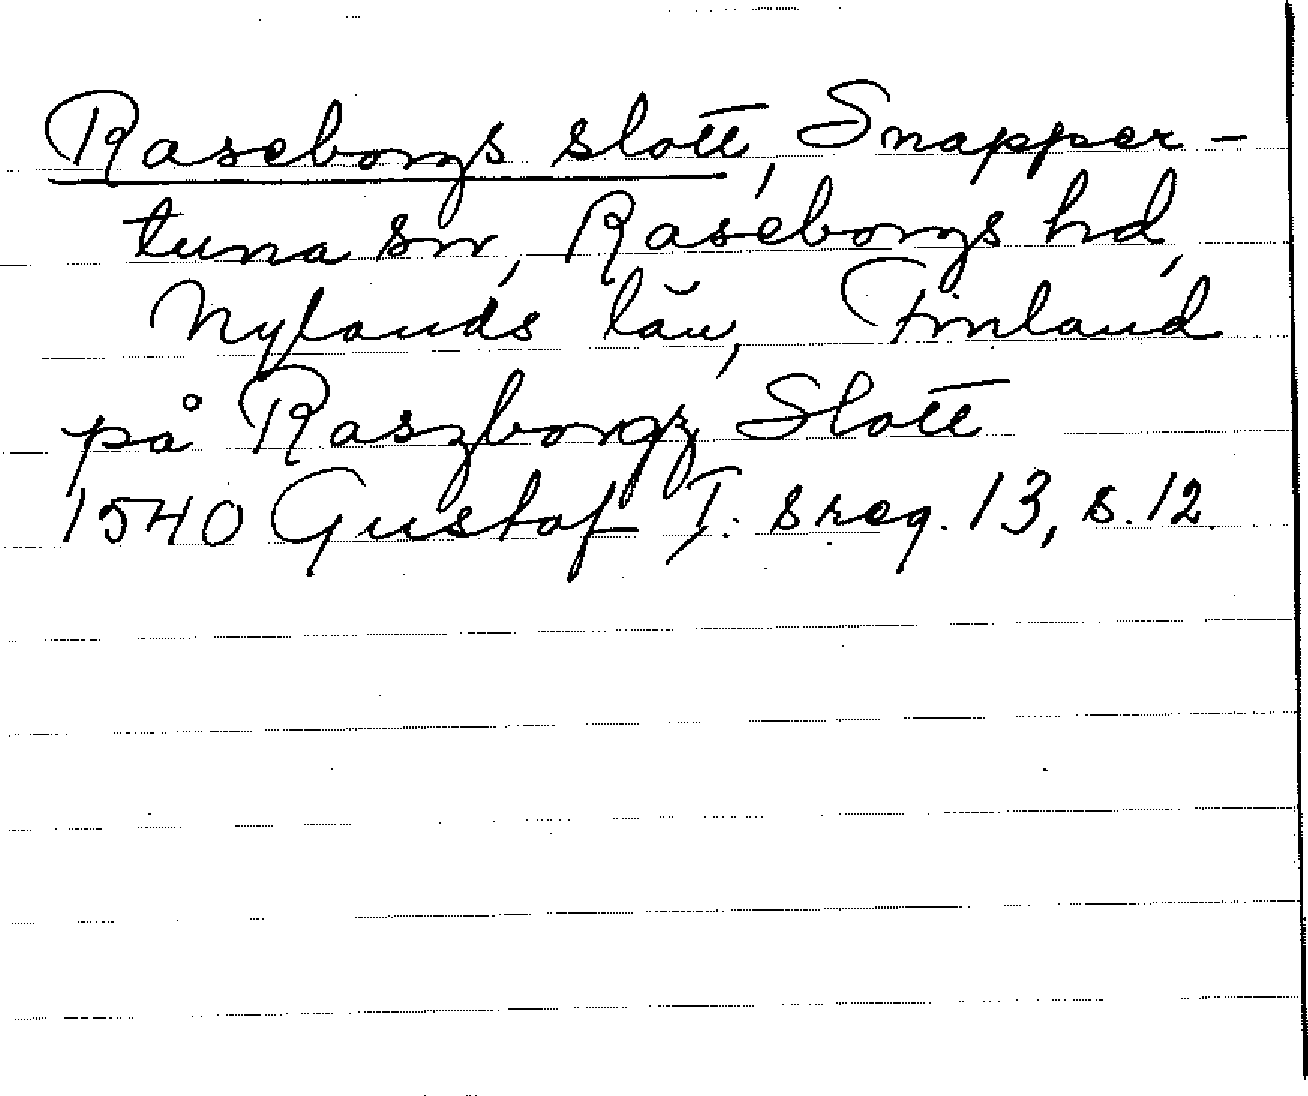 Raseborgs slott, Snapper-
tuna sn, Raseborgs hd,
Nylands län, Finland
på Raszborgz Slott
1540 Gustaf I. sreg. 13, s. 12.